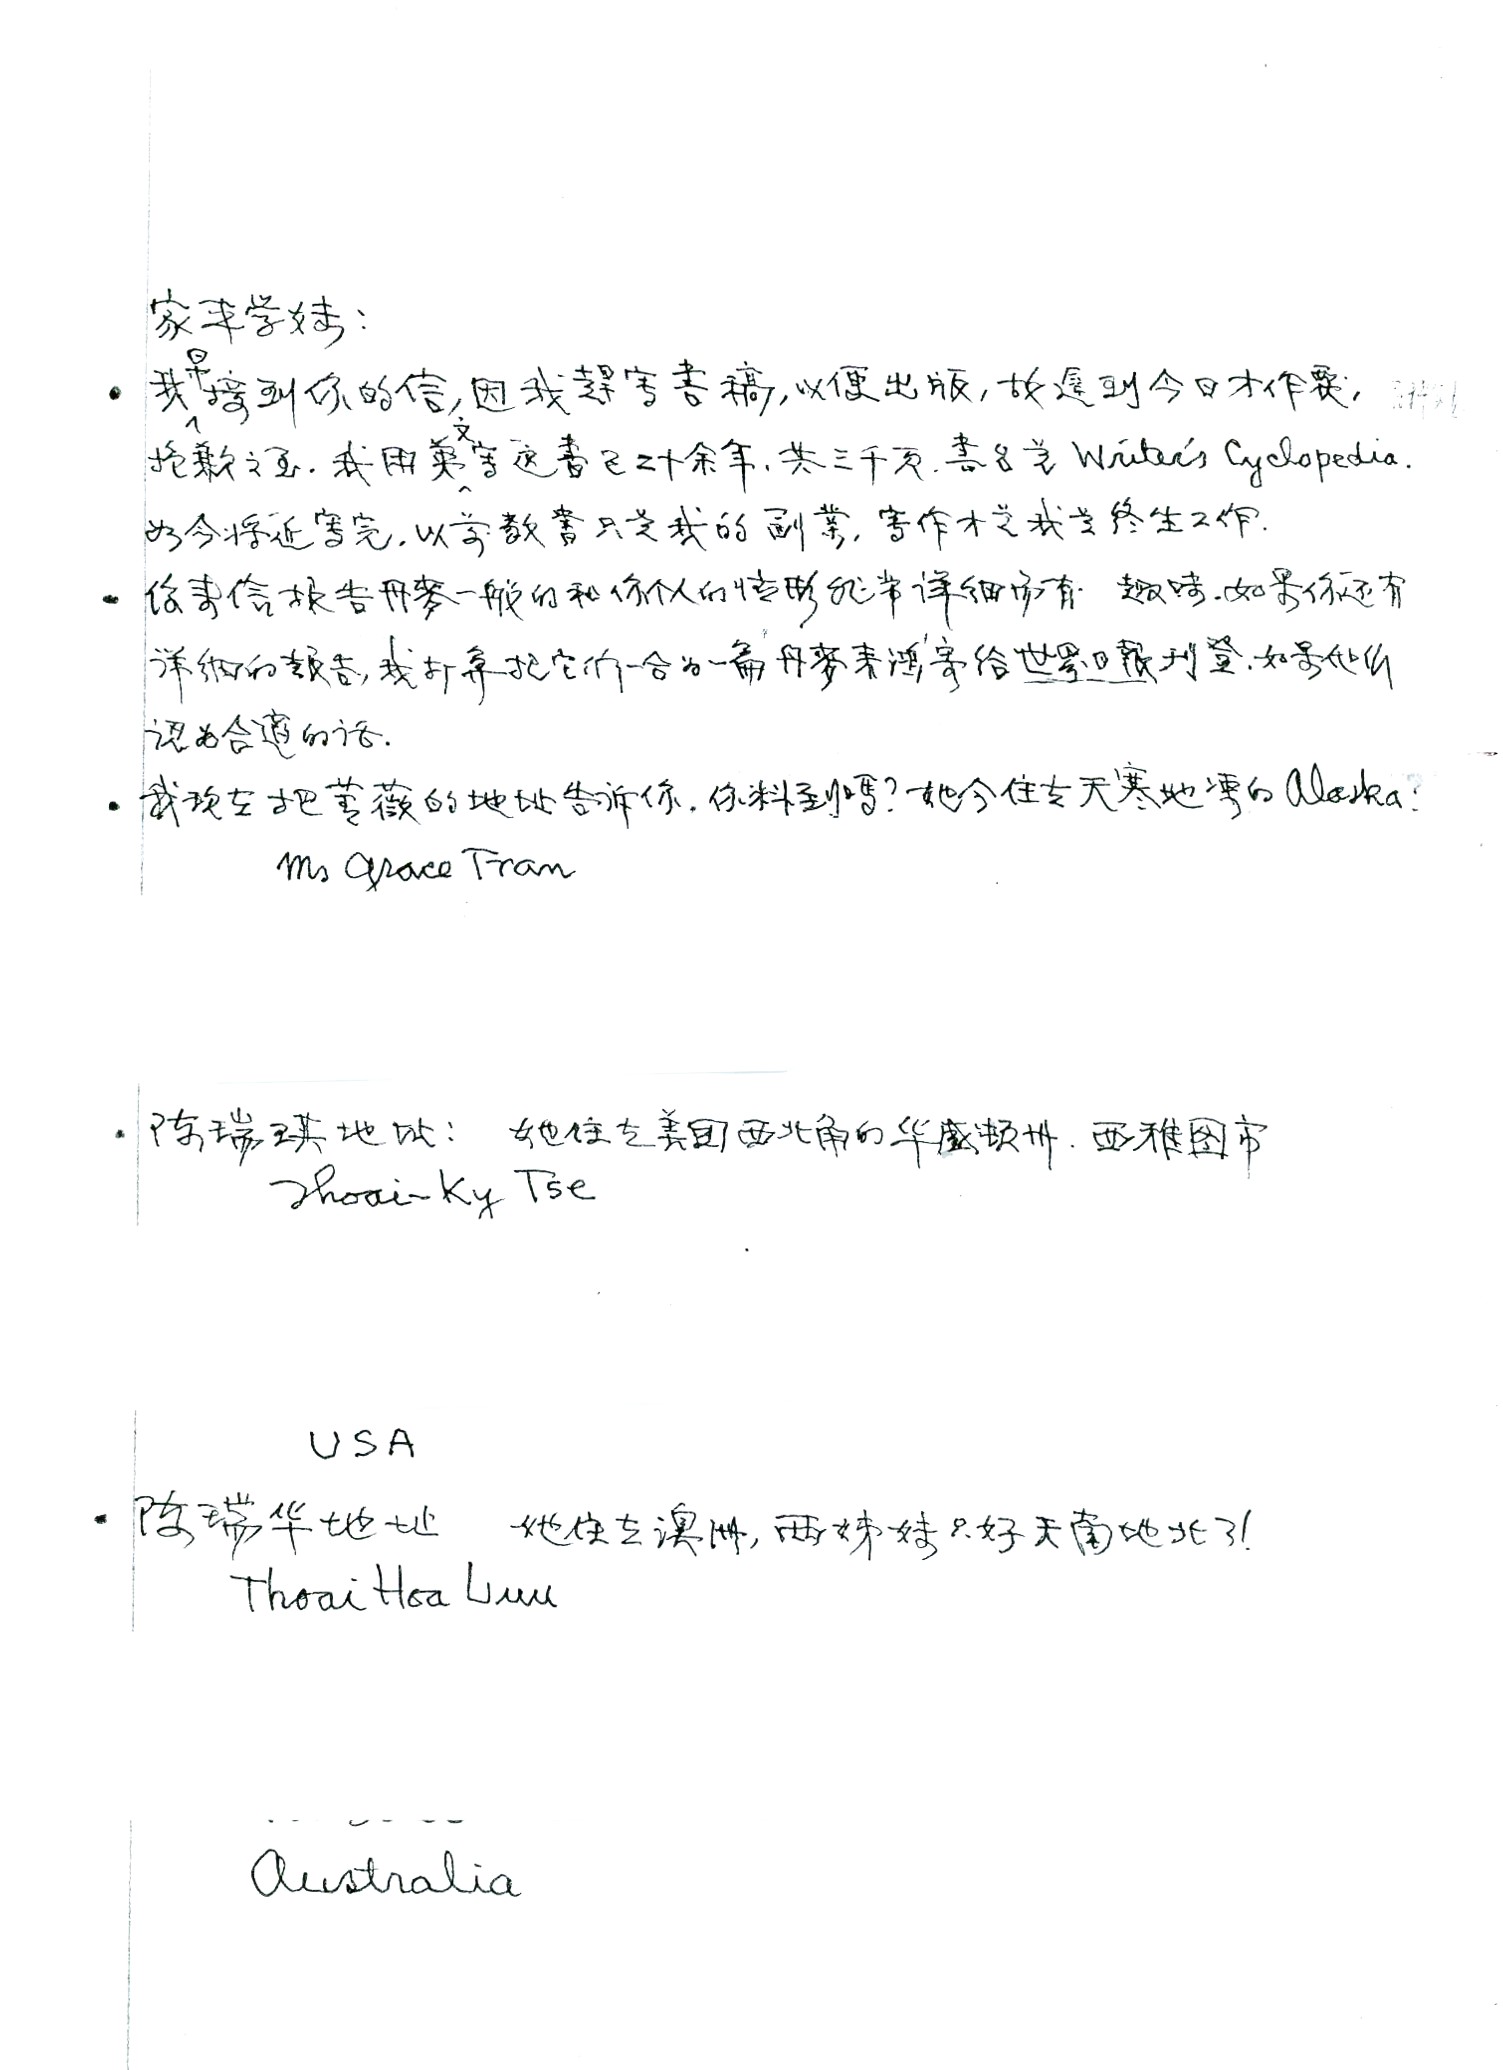 家来学妹：
• 我早接到你的信，因我趕写書稿，以便出版，故遲到今日才作覆，
抱歉之至．我用英文写这書已二十余年，共三千页．書名是 Writer's Cyclopedia.
如今将近写完．以前教書只是我的副業，写作才是我是终生工作．
• 你来信报告丹麥一般的和你个人的情形非常详细而有 趣味．如果你还有
详细的報告，我打算把它们合为一篇丹麥来鴻寄给世界日報刊登．如果他们
認为合適的话．
• 我现在把薔薇的地址告诉你．你料到吗？她今住在天寒地凍的 Alaska?
Ms Grace Tran
• 陈瑞琪地址： 她住在美国西北角的华盛顿州．西雅图市
Thoai-Ky Tse
USA
• 陈瑞华地址 她住在澳洲，两姊妹只好天南地北了！
Thoai Hoa Luu
Australia